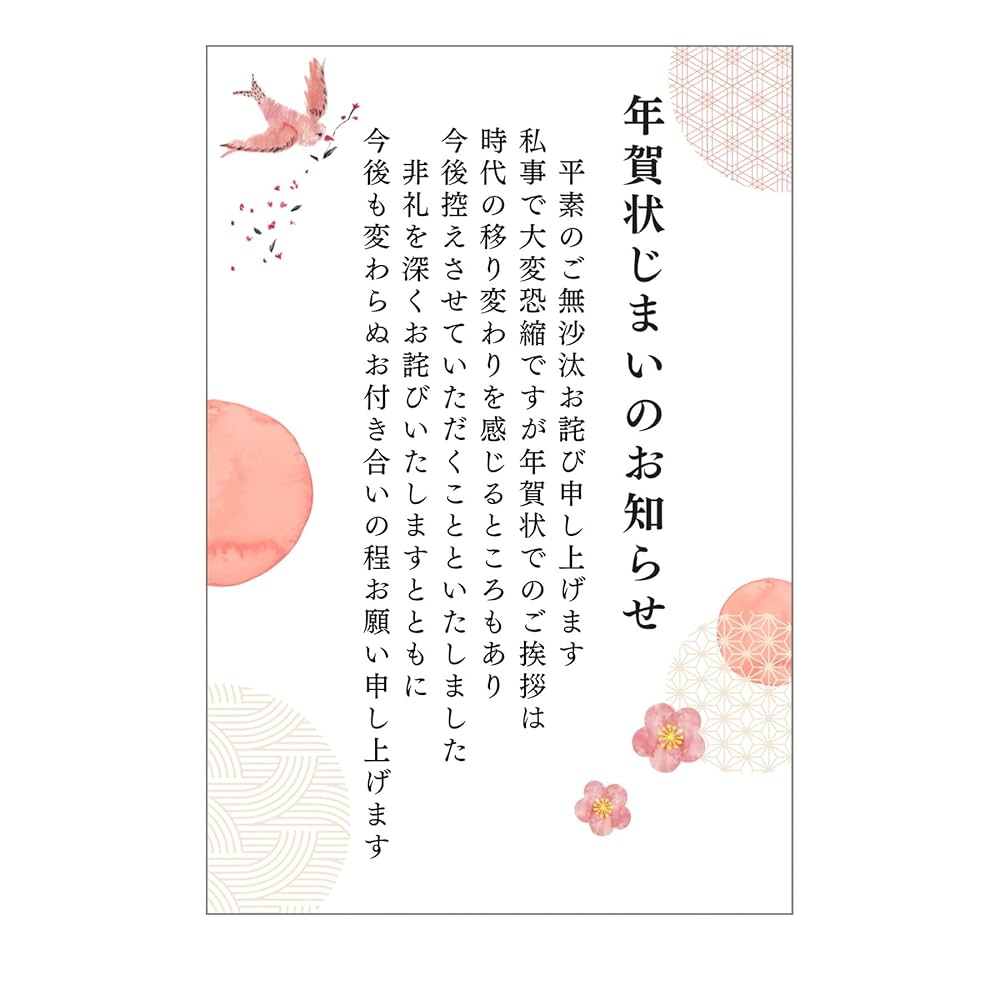 年賀状じまいのお知らせ
平素のご無沙汰お詫び申し上げます
私事で大変恐縮ですが年賀状でのご挨拶は
時代の移り変わりを感じるところもあり
今後控えさせていただくことといたしました
非礼を深くお詫びいたしますとともに
今後も変わらぬお付き合いの程お願い申し上げます